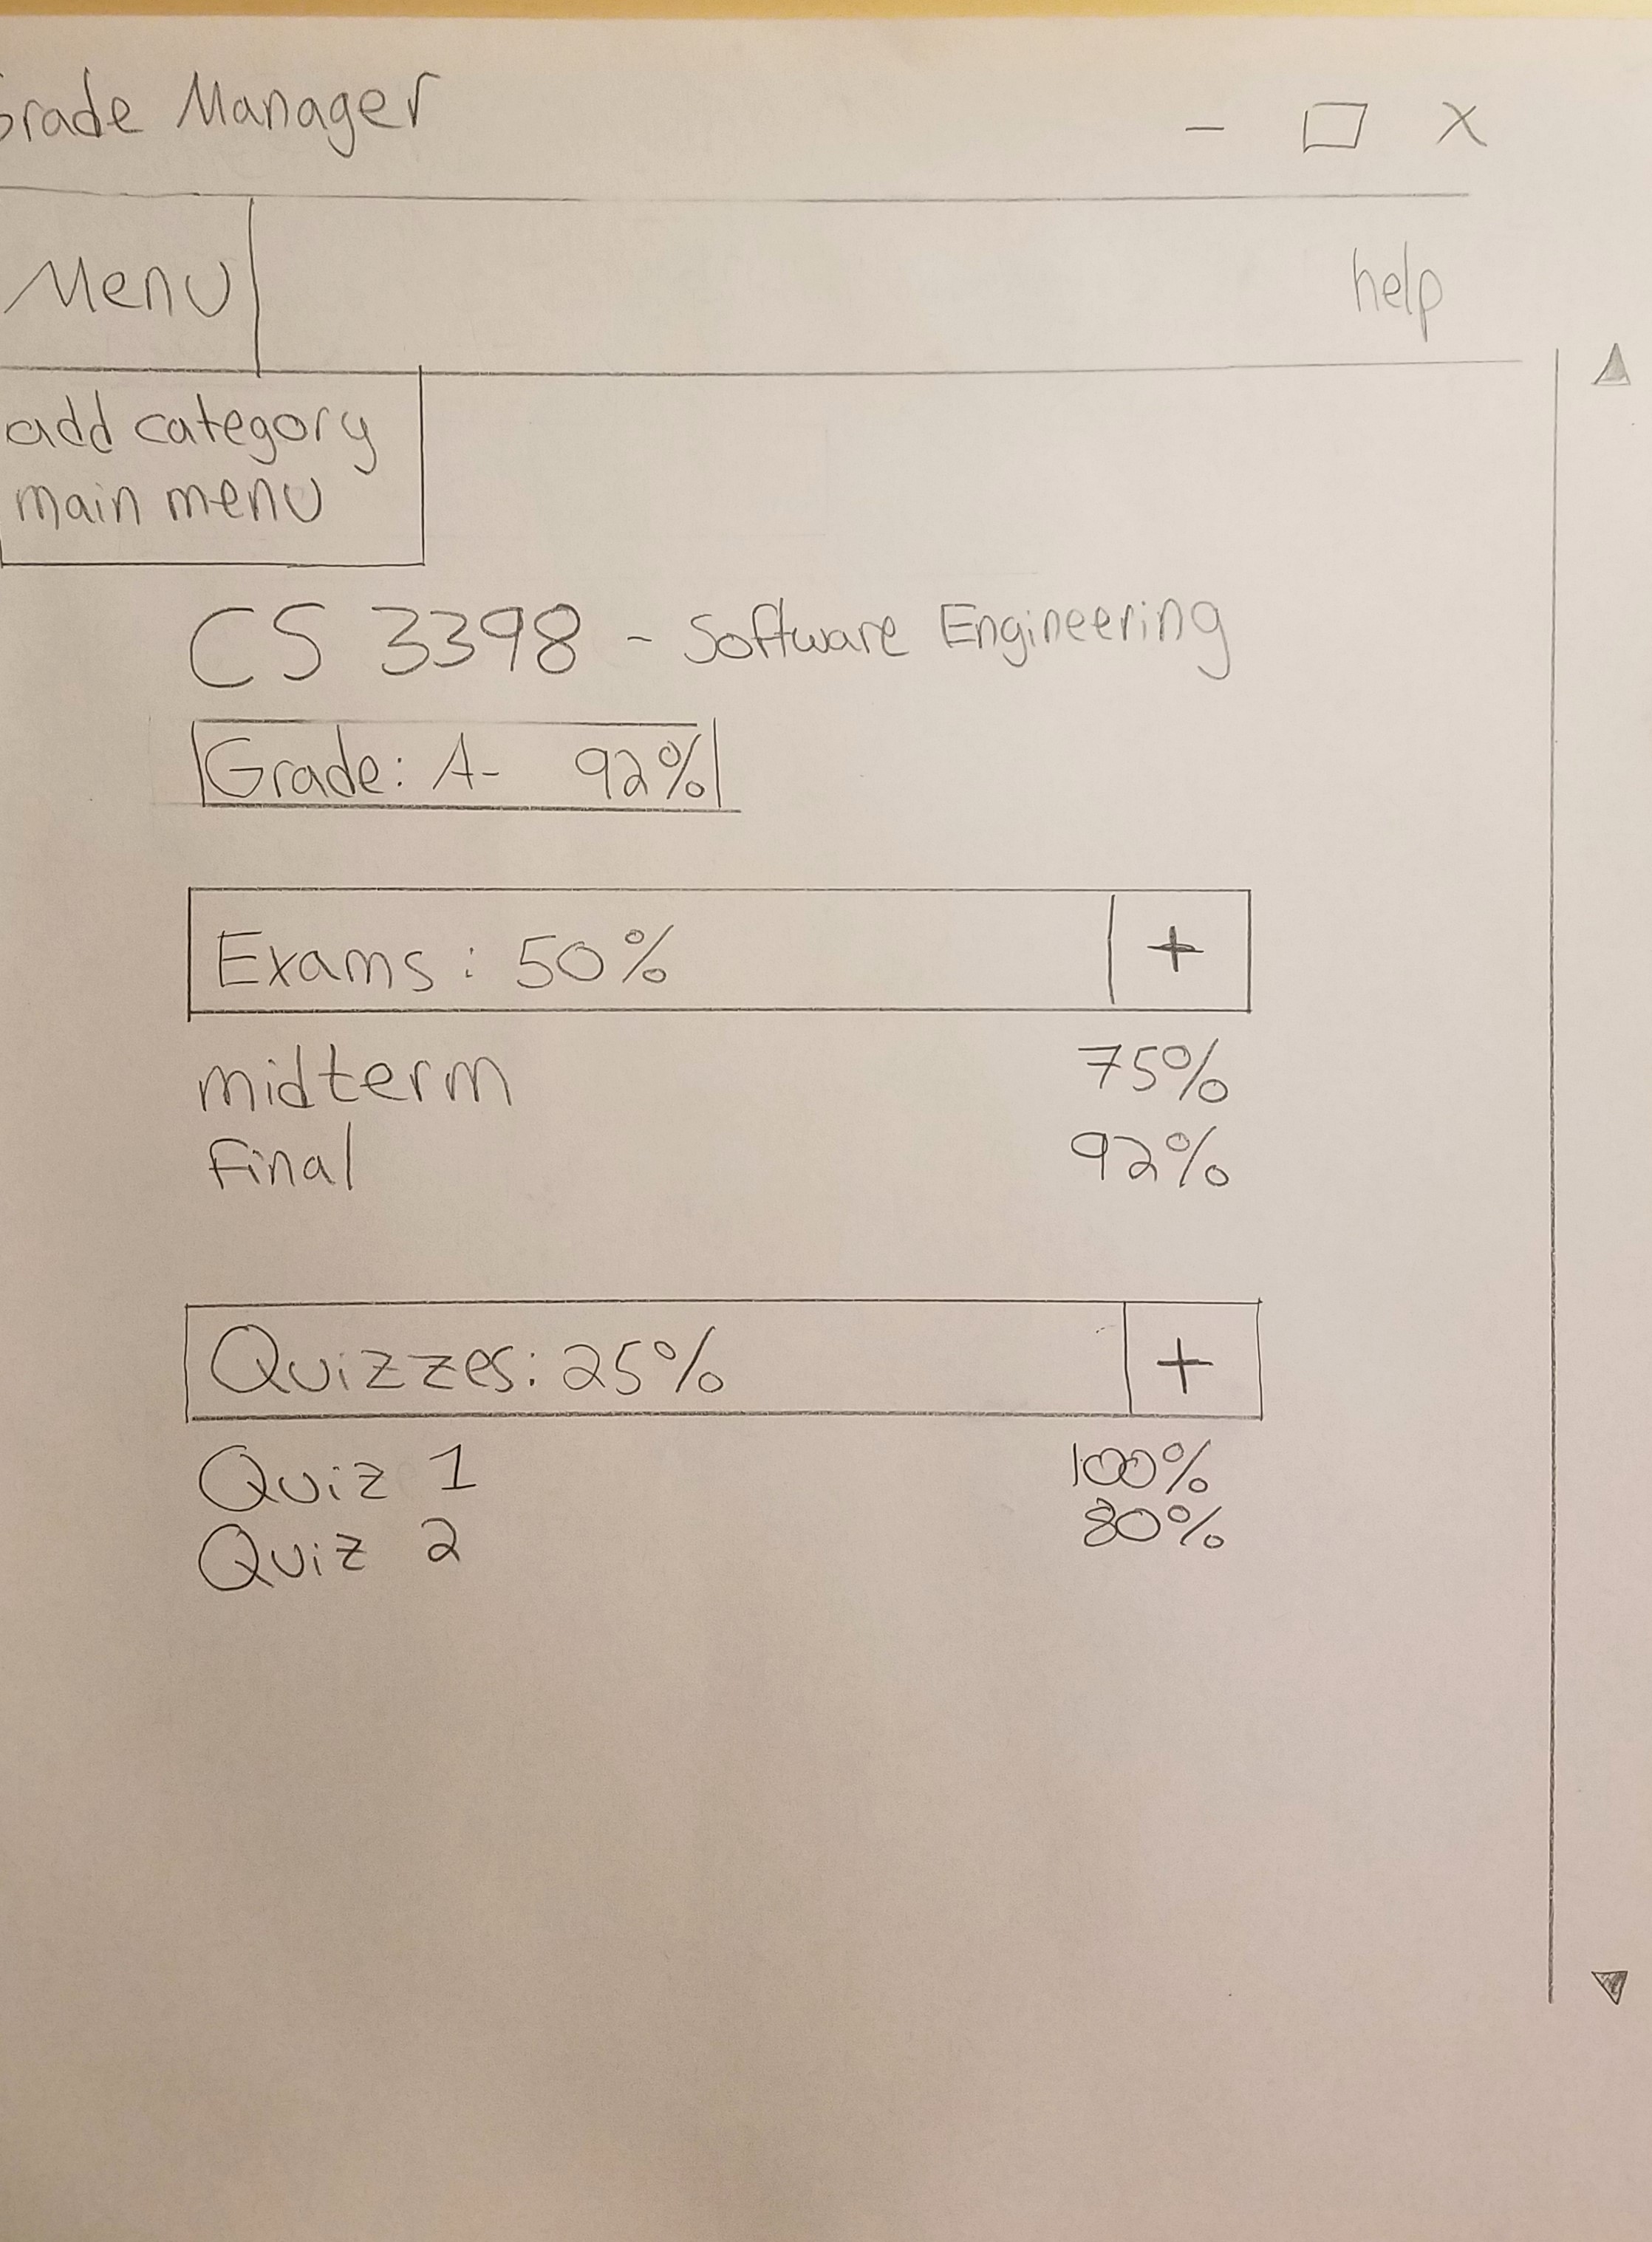 Grade Manager - □ X
Menu help
add category
main menu
CS 3398 - Software Engineering
Grade: A- 92%
Exams: 50% +
midterm 75%
final 92%
Quizzes: 25% +
Quiz 1 100%
Quiz 2 80%